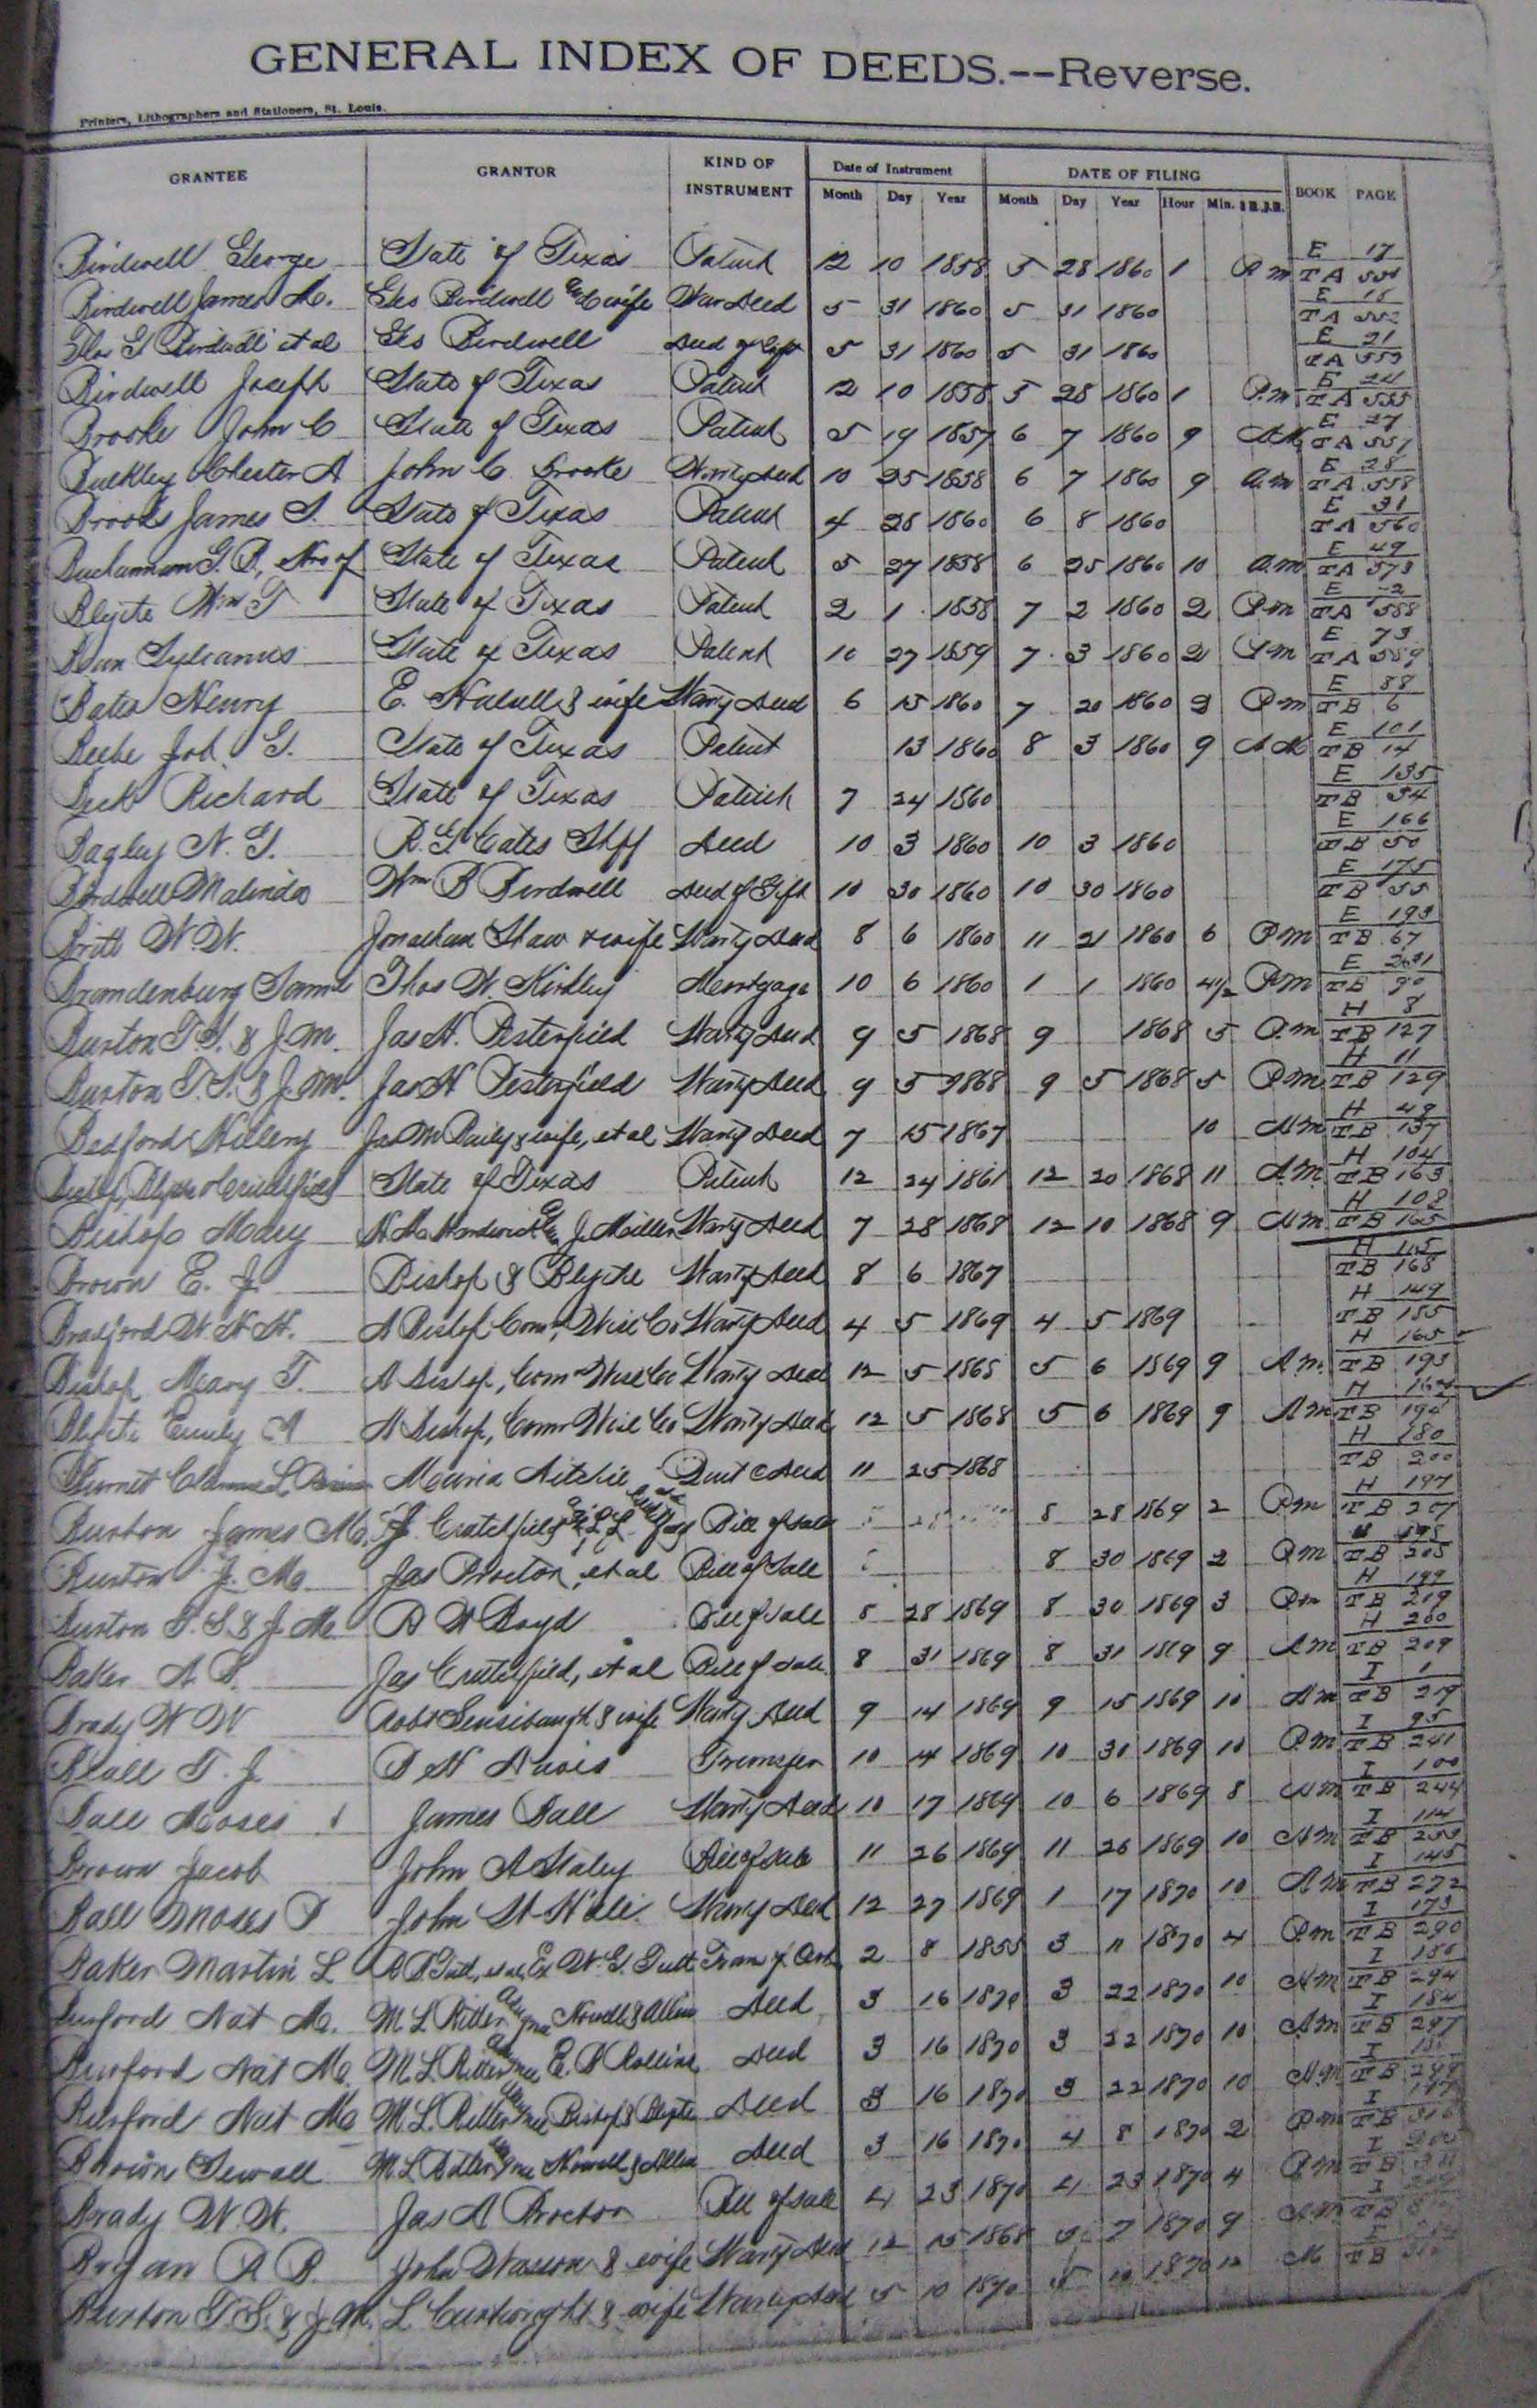 GENERAL INDEX OF DEEDS.--Reverse.
Printers, Lithographers and Stationers, St. Louis.
GRANTEE GRANTOR KIND OF INSTRUMENT Date of Instrument DATE OF FILING BOOK PAGE
Month Day Year Month Day Year Hour Min.
Birdwell George State of Texas Patent 12 10 1858 5 28 1860 1 P.m E 17 TA
Birdwell James M. Geo Birdwell & wife War Deed 5 31 1860 5 31 1860 E 18 TA 552
Geo Birdwell Deed of Gift 5 31 1860 5 31 1860 E 21 TA 553
Birdwell Joseph State of Texas Patent 12 10 1858 5 28 1860 1 P.m E 24 TA 555
Brooke John C State of Texas Patent 5 19 1857 6 7 1860 9 A.M E 27 TA 557
Bulkley Chester A John C Brooke Warty Deed 10 25 1858 6 7 1860 9 a.m E 28 TA 558
Brooks James S. State of Texas Patent 4 28 1860 6 8 1860 E 31 TA 560
Buchannan G. B, State of Texas Patent 5 27 1858 6 25 1860 10 a.m E 49 TA 573
Blythe Wm T State of Texas Patent 2 1 1858 7 2 1860 2 P.m E TA 588
Bean Sylvanus State of Texas Patent 10 27 1859 7 3 1860 2 P.m E 73 TA 589
Bates Henry E. & wife Warty Deed 6 15 1860 7 20 1860 P.m E 88 TB 6
Beebe Job G. State of Texas Patent 13 1860 8 3 1860 9 A M E 101 TB 14
Beck Richard State of Texas Patent 7 24 1860 E 135 TB 34
Bagley N. G. R. G. Cates Shff Deed 10 3 1860 10 3 1860 E 166 TB 50
Birdwell Malinda Wm B Birdwell Deed of Gift 10 30 1860 10 30 1860 E 175 TB 55
Britt W. W. Jonathan Shaw & wife Warty Deed 8 6 1860 11 21 1860 6 P.m E 193 TB 67
Brandenburg Saml Thos W. Kirkley Mortgage 10 6 1860 1 1 1860 4½ P.m E TB 90
Burton T. S. & J. M. Jas H. Pesterfield Warty Deed 9 5 1868 9 1868 5 P.m H 8 TB 127
Burton T. S. & J. M. Jas H Pesterfield Warty Deed 9 5 1868 9 5 1868 5 P.m H 11 TB 129
Bedford Hillery Jas M Daily & wife, et al Warty Deed 7 15 1867 10 A.m H 48 TB 137
State of Texas Patent 12 24 1861 12 20 1868 11 A.M. H 104 TB 163
Bishop Mary J. Miller Warty Deed 7 28 1868 12 10 1868 9 A.m H 108 TB 165
Brown E. J. Bishop & Blythe Warty Deed 8 6 1867 H 115 TB 168
Bradford W. H. H. A Bishop Comr, Wise Co Warty Deed 4 5 1869 4 5 1869 H 149 TB 185
Bishop Mary T. A Bishop, Comr Wise Co Warty Deed 12 5 1868 5 6 1869 9 A.m. H 165 TB 193
Blythe Emily A A Bishop, Comr Wise Co Warty Deed 12 5 1868 5 6 1869 9 A.m H TB 194
Burnet Maria Ritchie Quit C Deed 11 25 1868 H 180 TB 200
Burton James M. Crutchfield Bill of Sale 8 28 1869 2 P.m H 197 TB 207
Burton J. M. Jas Proctor, et al Bill of Sale 8 30 1869 2 P.m TB 208
Burton T. S. & J. M. R W Boyd Bill of Sale 8 28 1869 8 30 1869 3 P.m H 199 TB 209
Baker A. B. Jas Crutchfield, et al Bill of Sale 8 31 1869 8 31 1869 9 A m H 200 TB 209
Brady W W Robt Sensibaugh & wife Warty Deed 9 14 1869 9 15 1869 10 A m I 1 TB 219
Beall T. J. D H Davis Transfer 10 14 1869 10 30 1869 10 P.m I 95 TB 241
Ball Moses James Ball Warty Deed 10 17 1869 10 6 1869 8 A.m I 100 TB 244
Brown Jacob John A Staley Bill of Sale 11 26 1869 11 26 1869 10 A m I 114 TB 253
Ball Moses John W Hale Warty Deed 12 27 1869 1 17 1870 10 A m I 145 TB 272
Baker Martin L W. G. Tutt Tran of Cert 2 8 1855 3 11 1870 4 P.m I 173 TB 290
Burford Nat M. M. L. Ritter Adm Nowell & Allen Deed 3 16 1870 3 22 1870 10 A.m I 180 TB 294
Burford Nat M. M L Ritter E. D Rollins Deed 3 16 1870 3 22 1870 10 A.m I 184 TB 297
Burford Nat M. M. L. Ritter Bishop & Blythe Deed 3 16 1870 3 22 1870 10 A.M. I TB 299
Brown Sewall M L Ritter Nowell & Allen Deed 3 16 1870 4 8 1870 2 P.m I TB
Brady W. W. Jas A Proctor Bill of Sale 4 23 1870 4 23 1870 4 P.m I TB
Bryan R B. John Wasson & wife Warty Deed 12 15 1868 5 7 1870 9 A.m I TB
Burton T. S. & J. M. L. Curtwright & wife Warty Deed 5 10 1870 5 10 1870 12 M I TB